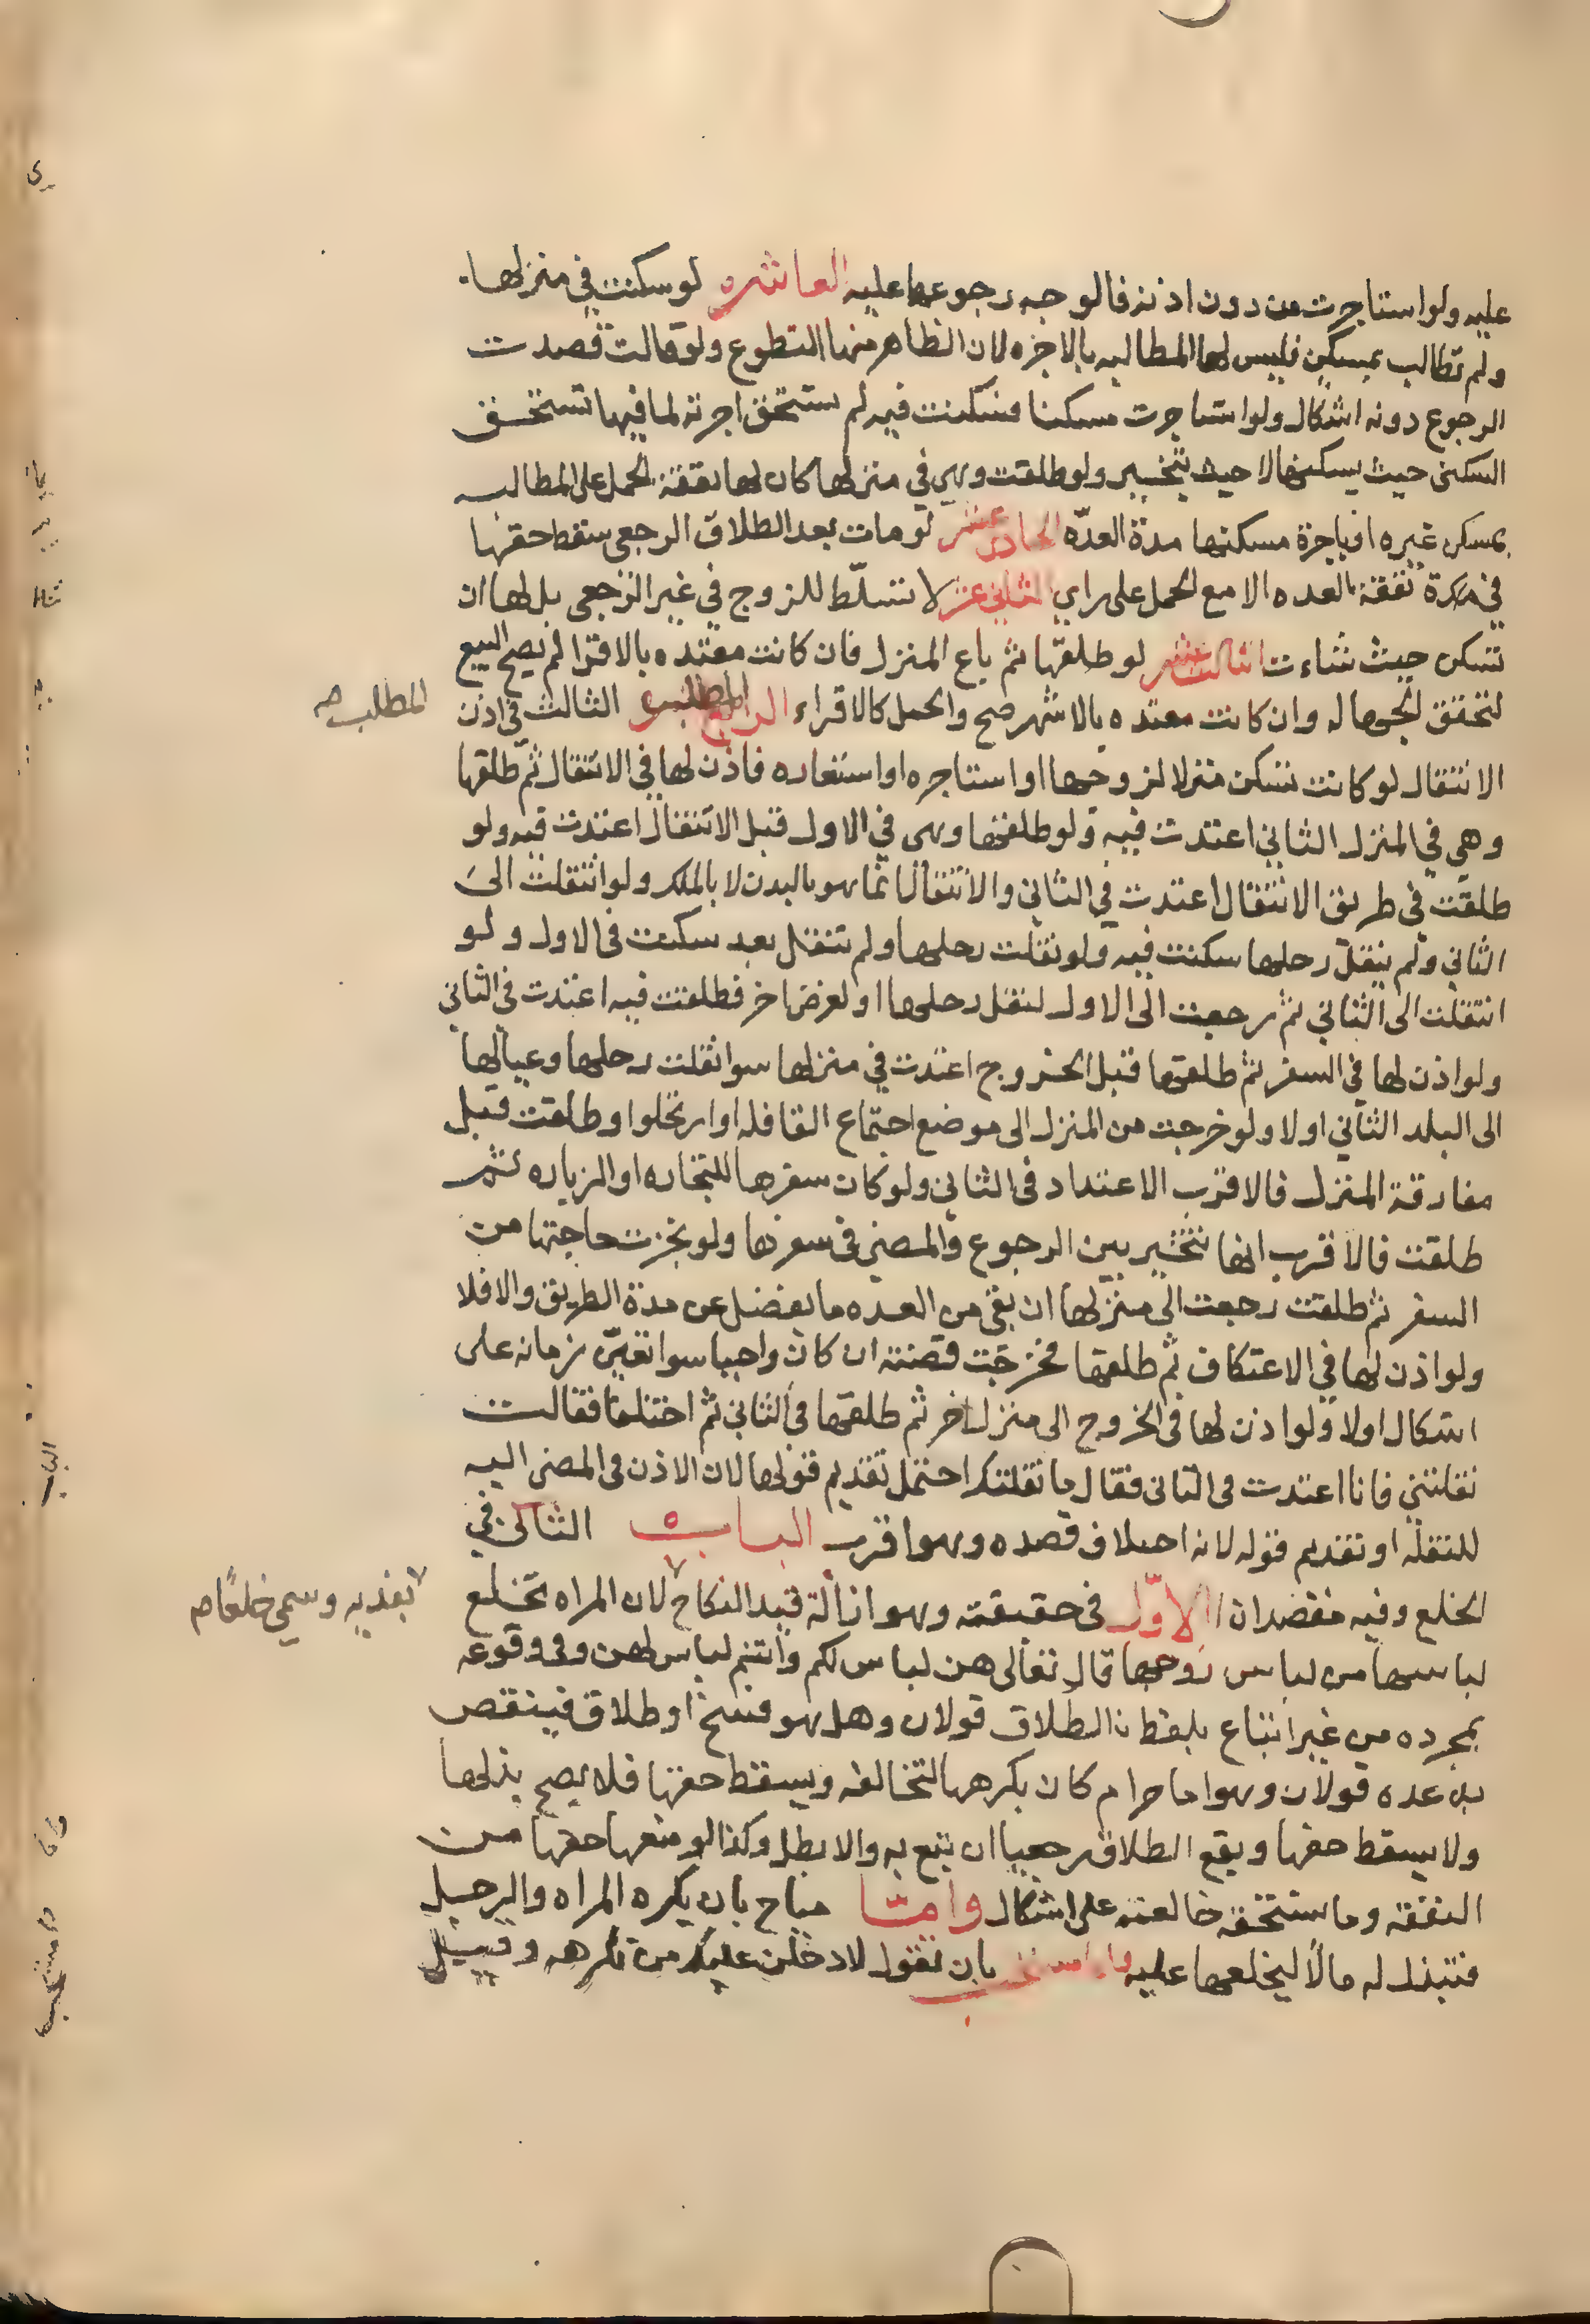 عليه ولو استاجرت من دون اذنه فالوجه رجوعها عليه العاشره لو سكنت في منزلها
ولم تطالب بمسكن فليس لها المطالبه بالاجره لان الظاهر منها التطوع ولو قالت قصدت
الرجوع دونه اشكال ولو استاجرت مسكنا فسكنت فيه لم ستحق اجرته لما فيها تستحق
السكنى حيث يسكنها لا حيث تتخير ولو طلقت وهي في منزلها كان لها المطالبه
بمسكن غيره او باجرة مسكنها مدة العدّه الحادى عشر لو مات بعد الطلاق الرجعى سقط حقها
في نفقة العده الا مع الحمل على راي الثاني عشر لا تسلّط للزوج في غير الرجعى بل لها ان
تسكن حيث شاءت الثالث عشر لو طلقها ثم باع المنزل فان كانت معتده بالاقرا لم يصح البيع
لتحقق الجهاله وان كانت معتده بالاشهر صح والحمل كالاقراء المطلب الثالث فى اذن
المطلب صح
الانتقال لو كانت تسكن منزلا لزوجها او استاجره او استعاره فاذن لها في الانتقال ثم طلقها
وهي في المنزل الثاني اعتدت فيه ولو طلقها وهى في الاول قبل الانتقال اعتدت فيه ولو
طلقت في طريق الانتقال اعتدت في الثاني والانتقال انما هو بالبدن لا بالملك ولو انتقلت الى
الثاني ولم ينقل رحلها سكنت فيه ولو نقلت رحلها ولم تنتقل بعد سكنت فى الاول ولو
انتقلت الى الثاني ثم رجعت الى الاول لنقل رحلها او لغرض اخر فطلقت فيه اعتدت في الثاني
ولو اذن لها في السفر ثم طلقها قبل الخروج اعتدت في منزلها سوا نقلت رحلها وعيالها
الى البلد الثاني اولا ولو خرجت من المنزل الى موضع اجتماع القافله او ارتحلوا وطلقت قبل
مفارقة المنزل فالاقرب الاعتداد فى الثاني ولو كان سفرها للتجاره او الزياره ثم
طلقت فالاقرب انها تتخير بين الرجوع والمضي فى سفرها ولو نجزت حاجتها من
السفر ثم طلقت رجعت الى منزلها ان بقي من العده ما يفضل عن مدة الطريق والا فلا
ولو اذن لها في الاعتكاف ثم طلقها فخرجت قضته ان كان واجبا سوا تعيّن زمانه على
اشكال اولا ولو اذن لها فى الخروج الى منزل اخر ثم طلقها في الثاني ثم اختلفا فقالت
نقلتني فانا اعتدت فى الثانى فقال ما نقلتك احتمل تقديم قولها لان الاذن فى المضى اليه
للنقله او تقديم قوله لانه اختلاف قصده وهو اقرب الباب الثانى في
الخلع وفيه مقصدان الاوّل في حقيقته وهو ازالة قيد النكاح لان المراه تخلع
بفديه وسمي خلعًا صح
لباسها من لباس زوجها قال تعالى هن لباس لكم وانتم لباس لهن وفى وقوعه
بمجرده من غير اتباع بلفظ الطلاق قولان وهل هو فسخ او طلاق فينقص
به عدده قولان وهو اما حرام كان يكرهها لتخالعه ويسقط حقها فلا يصح بذلها
ولا يسقط حقها ويقع الطلاق رجعيا ان يتبع به والا بطل وكذا لو منعها حقها من
النفقه وما ستحقه خالعته على اشكال واما مباح بان يكره المراه والرجل
فتبذل له مالًا ليخلعها عليه واما مستحب بان تقول لادخلن عليك من تكرهه وقيل